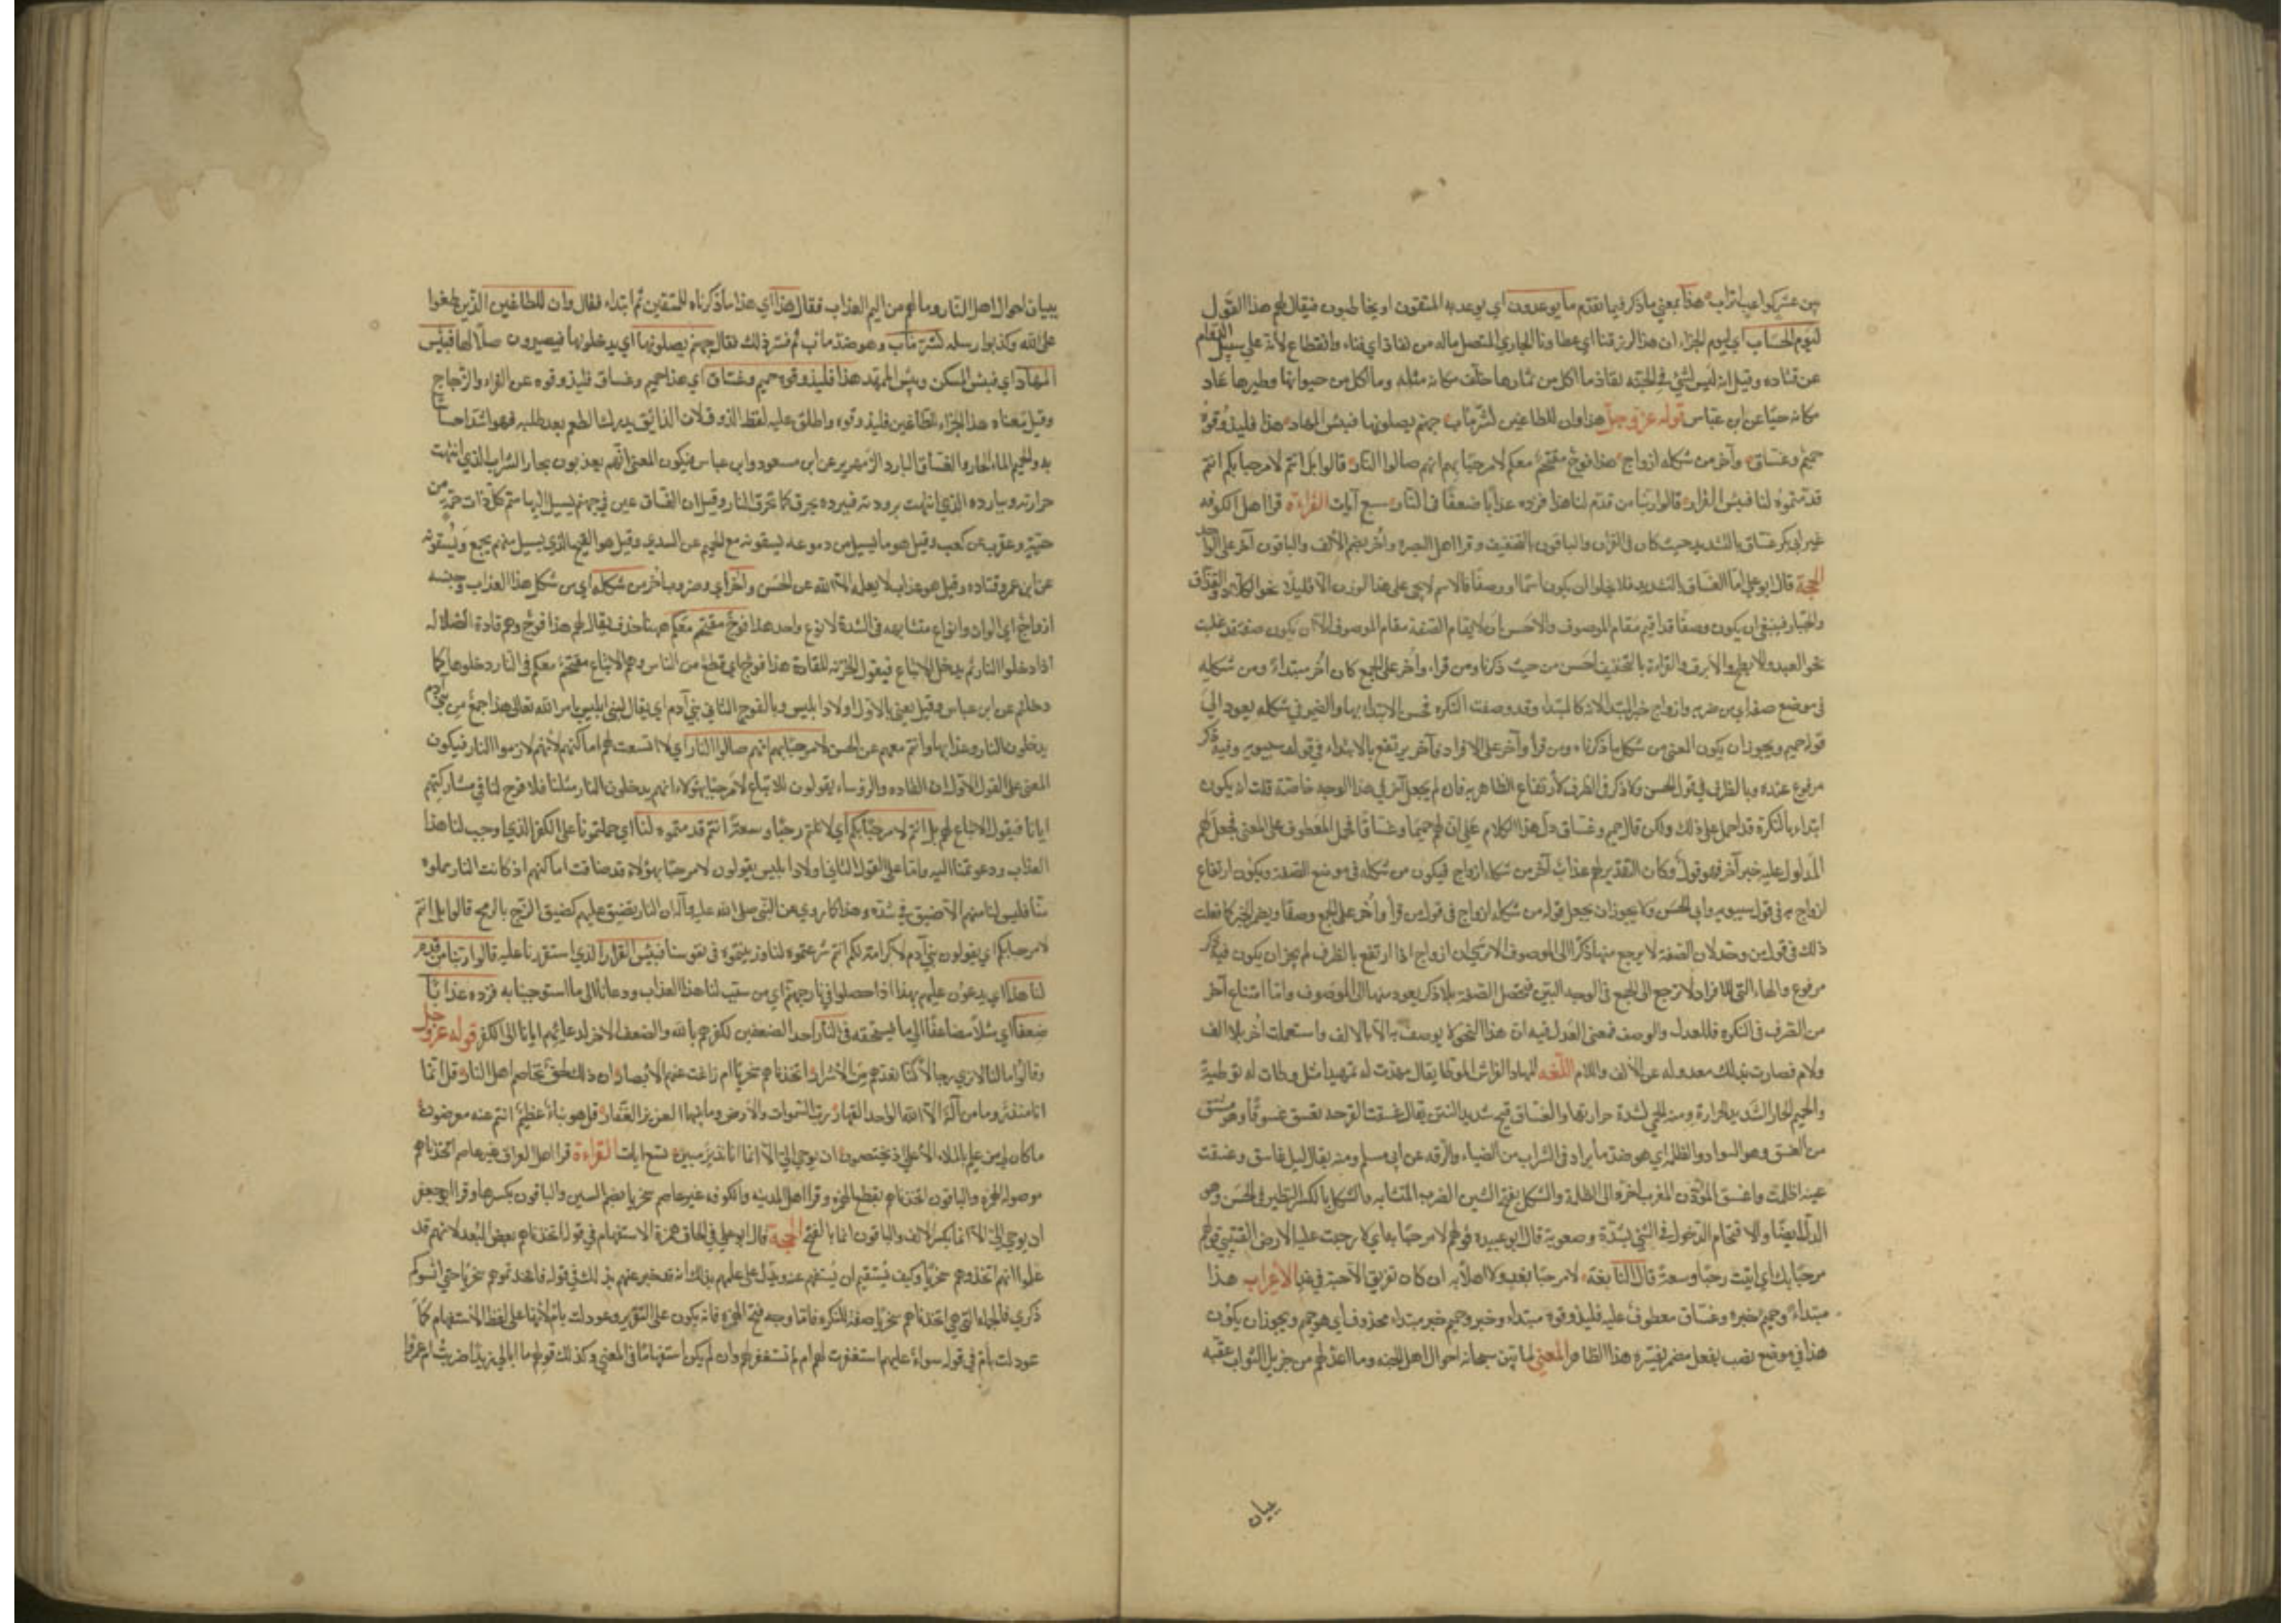 بين عشر كواعب اتراب هذا بمعنى ما ذكر فيما تقدم ما يوعدون اي يوعد به المتقون او يخاطبون فيقال لهم هذا القول
ليوم الحساب اي ليوم الجزاء ان هذا لرزقنا اي عطاونا الجاري المتصل ماله من نفاد اي فناء وانقطاع لانه على سبيل الدوام
عن قتاده وقيل انه ليس لشئ في الجنة نفاد ما اكل من ثمارها خلف مكانه مثله وما اكل من حيوانها وطيرها عاد
مكانه حيا عن ابن عباس قوله عز وجل هذا وان للطاغين لشر مآب جهنم يصلونها فبئس المهاد هذا فليذوقوه
حميم وغساق وآخر من شكله ازواج هذا فوج مقتحم معكم لا مرحبا بهم انهم صالوا النار قالوا بل انتم لا مرحبا بكم انتم
قدمتموه لنا فبئس القرار قالوا ربنا من قدم لنا هذا فزده عذابا ضعفا في النار سبع آيات القراءة قرا اهل الكوفه
غير ابي بكر غساق بالتشديد حيث كان في القران والباقون بالتخفيف وقرا اهل البصره واُخر بضم الالف والباقون آخر على الواحد
الحجة قال ابو علي اما الغساق بالتشديد فلا يخلوا ان يكون اسما او وصفا فالاسم لا يجي على هذا الوزن الا قليلا نحو الكلاء والقذاف
والجبار فينبغي ان يكون وصفا قد اقيم مقام الموصوف والاحسن ان لا يقام الصفة مقام الموصوف الا ان يكون صفة قد غلبت
نحو العبد والابطح والابرق والقراءة بالتخفيف احسن من حيث ذكرنا ومن قراء واُخر على الجمع كان اُخر مبتداء ومن شكله
في موضع صفة اي من ضربه وازواج خبر المبتدا لانه كالمبتدا وقد وصفت النكرة فحسن الابتداء بها والضمير في شكله يعود الى
قوله حميم ويجوز ان يكون المعنى من شكل ما ذكرناه ومن قرا وآخر على الافراد فآخر يرتفع بالابتداء في قول سيبويه وفيه ذكر
مرفوع عنده وبالظرف في قول الحسن ولا ذكر في الظرف لارتفاع الظاهر به فان لم يجعل آخر في هذا الوجه خاصة قلت انه يكون
ابتداء بالنكرة قد احمل على ذلك ولكن قال حميم وغساق دل هذا الكلام على ان لهم حميما وغساقا فحمل المعطوف على المعنى فجعل لهم
المدلول عليه خبر آخر فهو قول وكان التقدير لهم عذاب آخر من شكله ازواج فيكون من شكله في موضع الصفة ويكون ارتفاع
ازواج به في قول سيبويه وابي الحسن ولا يجوز ان يجعل قوله من شكله ازواج في قول من قرا واُخر على الجمع وصفا ويضمر الخبر كما فعلت
ذلك في قول من وحد لان الصفة لا يرجع منها ذكر الى الموصوف الا ترى ان ازواج اذا ارتفع بالظرف لم يجز ان يكون فيه ذكر
مرفوع والهاء التي للافراد لا ترجع الى الجمع في الوجه البين فتحصل الصفة بلا ذكر يعود منها الى الموصوف واما امتناع آخر
من الصرف في النكره فللعدل والوصف فمعنى العدل فيه ان هذا النحو لا يوصف به الا بالالف واستعملت اُخر بلا الف
ولام فصارت بذلك معدوله عن الالف واللام اللغه المهاد الفراش الموطا يقال مهدت له تمهيدا مثل وطات له توطية
والحميم الحار الشديد الحرارة ومنه الحمى لشدة حرارتها والغساق قيح شديد النتن يقال غسقت القرحه تغسق غسوقا وهو مشتق
من الغسق وهو السواد والظلم اي هو ضد ما يراد في الشراب من الضياء والرقه عن ابي مسلم ومنه يقال ليل غاسق وغسقت
عينه اظلمت واغسق الموذن المغرب اخره الى الظلمة والشكل بفتح الشين الضرب المتشابه والشكل بالكسر النظير في الحسن وهو
الدل ايضا والاقتحام الدخول في الشئ بشدة وصعوبة قال ابو عبيده قولهم لا مرحبا به اي لا رحبت عليه الارض القتيبي قولهم
مرحبا بك اي اتيت رحبا وسعة قال النابغة لا مرحبا بغد ولا اهلا به ان كان تفريق الاحبة في غد الاعراب هذا
مبتداء وحميم خبره وغساق معطوف عليه فليذوقوه مبتداء وخبر وحميم خبر مبتداء محذوف اي هو حميم ويجوز ان يكون
هذا في موضع نصب بفعل مضمر يفسره هذا الظاهر المعنى لما بين سبحانه احوال اهل الجنه وما اعد لهم من جزيل الثواب عقبه
بيان
ببيان احوال اهل النار وما لهم من اليم العذاب فقال هذا اي هذا ما ذكرناه للمتقين ثم ابتداء فقال وان للطاغين الذين طغوا
على الله وكذبوا رسله لشر مآب وهو ضد ماب ثم فسر ذلك فقال جهنم يصلونها اي يدخلونها فيصيرون صلاء لها فبئس
المهاد اي فبئس المسكن وبئس المهد هذا فليذوقوه حميم وغساق اي هذا حميم وغساق فليذوقوه عن الفراء والزجاج
وقيل معناه هذا الجزاء للطاغين فليذوقوه واطلق عليه لفظ الذوق لان الذائق يدرك الطعم بعد طلبه فهو اشد احساسا
به والحميم الماء الحار والغساق البارد الزمهرير عن ابن مسعود وابن عباس فيكون المعنى انهم يعذبون بحار الشراب الذي انتهت
حرارته وببارده الذي انتهت برودته فبرده يحرق كما تحرق النار وقيل ان الغساق عين في جهنم يسيل اليها سم كل ذات حمة من
حية وعقرب عن كعب وقيل هو ما يسيل من دموعه يسقونه مع الحميم عن السدي وقيل هو القيح الذي يسيل منهم يجمع ويسقونه
عن ابن عمر وقتاده وقيل هو عذاب لا يعلمه الا الله عن الحسن واخر اي وضروب اخر من شكله اي من شكل هذا العذاب وجنسه
ازواج اي الوان وانواع متشابهه في الشدة لا نوع واحد هذا فوج مقتحم معكم ههنا حذف يقال لهم هذا فوج وهم قادة الضلاله
اذا دخلوا النار ثم يدخل الاتباع فيقول الخزنه للقادة هذا فوج اي قطع من الناس وهم الاتباع مقتحم معكم في النار دخلوها كما
دخلتم عن ابن عباس وقيل يعني بالاول اولاد ابليس وبالفوج الثاني بني آدم اي يقال لبني ابليس بامر الله تعالى هذا جمع من بني آدم
يدخلون النار وعذابها وانتم معهم عن الحسن لا مرحبا بهم انهم صالوا النار اي لا اتسعت لهم اماكنهم لانهم لازموا النار فيكون
المعنى على القول الاول ان القاده والرؤساء يقولون للاتباع لا مرحبا بهولاء انهم يدخلون النار مثلنا فلا فرح لنا في مشاركتهم
ايانا فيقول الاتباع لهم بل انتم لا مرحبا بكم اي لا نلتم رحبا وسعة انتم قدمتموه لنا اي حملتمونا على الكفر الذي اوجب لنا هذا
العذاب ودعوتمونا اليه واما على القول الثاني اولاد ابليس يقولون لا مرحبا بهؤلاء قد ضاقت اماكنهم اذ كانت النار مملوه
منا فليس لنا منهم الا ضيق في شدة وهذا كما روي عن النبي صلى الله عليه وآله ان النار تضيق عليهم كضيق الزج بالرمح قالوا بل انتم
لا مرحبا بكم اي يقولون بني آدم لا كرامة لكم انتم شرعتموه لنا وزينتموه في نفوسنا فبئس القرار الذي استقررنا عليه قالوا ربنا من قدم
لنا هذا اي يدعون عليهم بهذا اذا حصلوا في نار جهنم اي من سبب لنا هذا العذاب ودعانا الى ما استوجبنا به فزده عذابا
ضعفا اي مثلا مضاعفا الى ما يستحقه في النار احد الضعفين لكفرهم بالله والضعف الاخر لدعائهم ايانا الى الكفر قوله عز وجل
وقالوا ما لنا لا نرى رجالا كنا نعدهم من الاشرار اتخذناهم سخريا ام زاغت عنهم الابصار ان ذلك لحق تخاصم اهل النار قل انما
انا منذر وما من آله الا الله الواحد القهار رب السموات والارض وما بينهما العزيز الغفار قل هو نباء عظيم انتم عنه معرضون
ما كان لي من علم بالملاء الاعلى اذ يختصمون ان يوحى الي الا انما انا نذير مبين تسع ايات القراءة قرا اهل العراق غير عاصم اتخذناهم
موصولة الهمزه والباقون اتخذناهم بقطع الهمزه وقرا اهل المدينه والكوفه غير عاصم سخريا بضم السين والباقون بكسرها وقرا ابو جعفر
ان يوحى الي الا انما بكسر الالف والباقون انما بالفتح الحجة قال ابو علي في الحاق همزة الاستفهام في قوله اتخذناهم بعض البعد لانهم قد
علموا انهم اتخذوهم سخريا وكيف يستقيم ان يستفهم عنه ويدل على علمهم بذلك انه قد خبر عنهم بذلك في قوله فاتخذتموهم سخريا حتى انسوكم
ذكري فالجملة التي هي اتخذناهم سخريا صفة للنكره فاما وجه فتح الهمزه فانه يكون على التقرير وعودلت بام لانها على لفظ الاستفهام كما
عودلت بام في قوله سواء عليهم استغفرت لهم ام لم تستغفر لهم وان لم يكن استفهاما في المعنى وكذلك قولهم ما ابالي زيدا ضربت ام عمروا